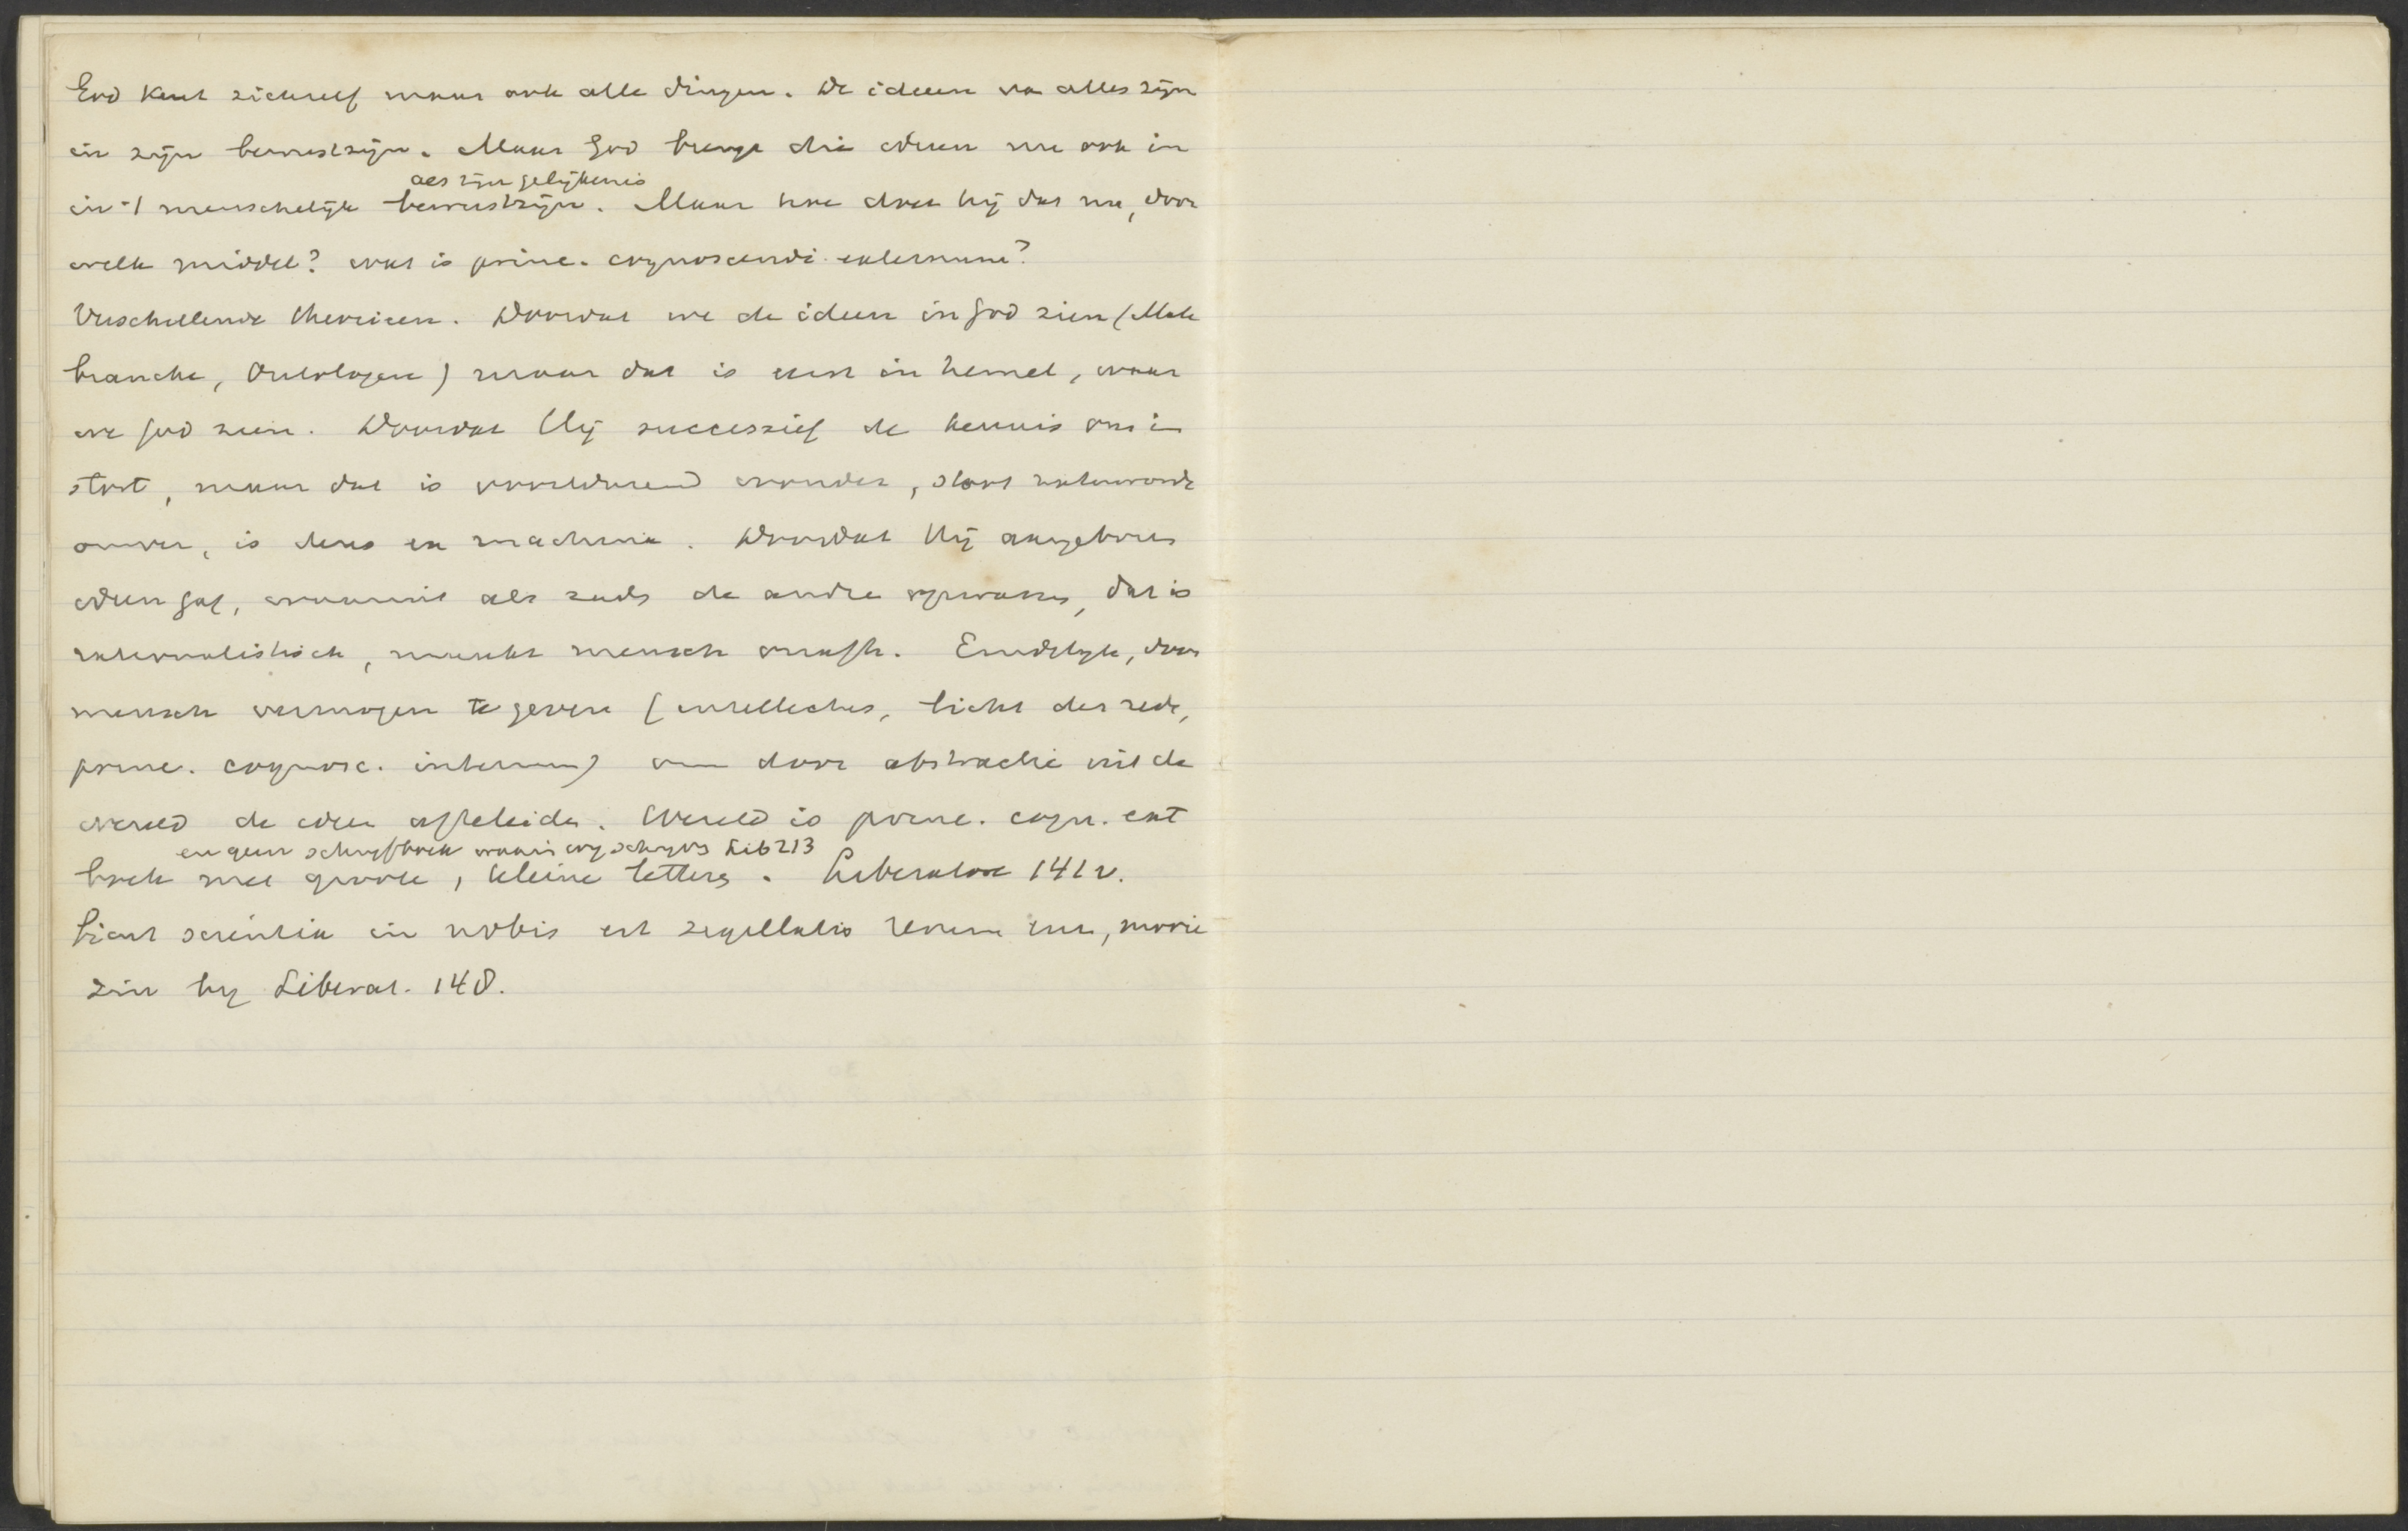 God kent zichzelf maar ook alle dingen. De ideeen van alles zijn
in zijn bewustzijn. Maar God brengt die ideeen nu ook in
als zijn gelijkenis
in 't menschelijk bewustzijn. Maar hoe doet hij dat nu, door
welk middel? wat is princ. cognoscendi externum?
Verschillende theorieen. Doordat we de ideen in God zien (Male
branche, Ontologen) maar dat is eerst in hemel, waar
we God zien. Doordat Hij successief de kennis ons in
stort, maar dat is voortdurend wonder, stoot natuurorde
omver, is deus ex machina. Doordat Hij aangeboren
ideen gaf, waaruit als zaads de andre opwassen, dat is
rationalistisch, maakt mensch onafh. Eindelijk, door
mensch vermogen te geven (intellectus, licht der rede,
princ. cognosc. internum) om door abstractie uit de
wereld de ideen afteleiden. Wereld is princ. cogn. ext
en geen schrijfboek waarin wij schrijven Lib 213
boek met groote, kleine letters. Liberatore 141 v.
scientia in nobis est sigillatio rerum enz, mooie
zin by Liberat. 148.